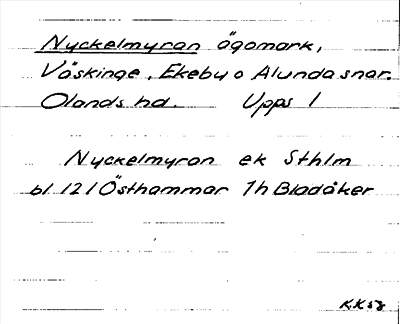 Nyckelmyran ägomark,
Väskinge, Ekeby o Alunda snar.
Olands hd. Upps l
Nyckelmyran ek Sthlm
bl 121 Östhammar 1h Bladåker
KK53